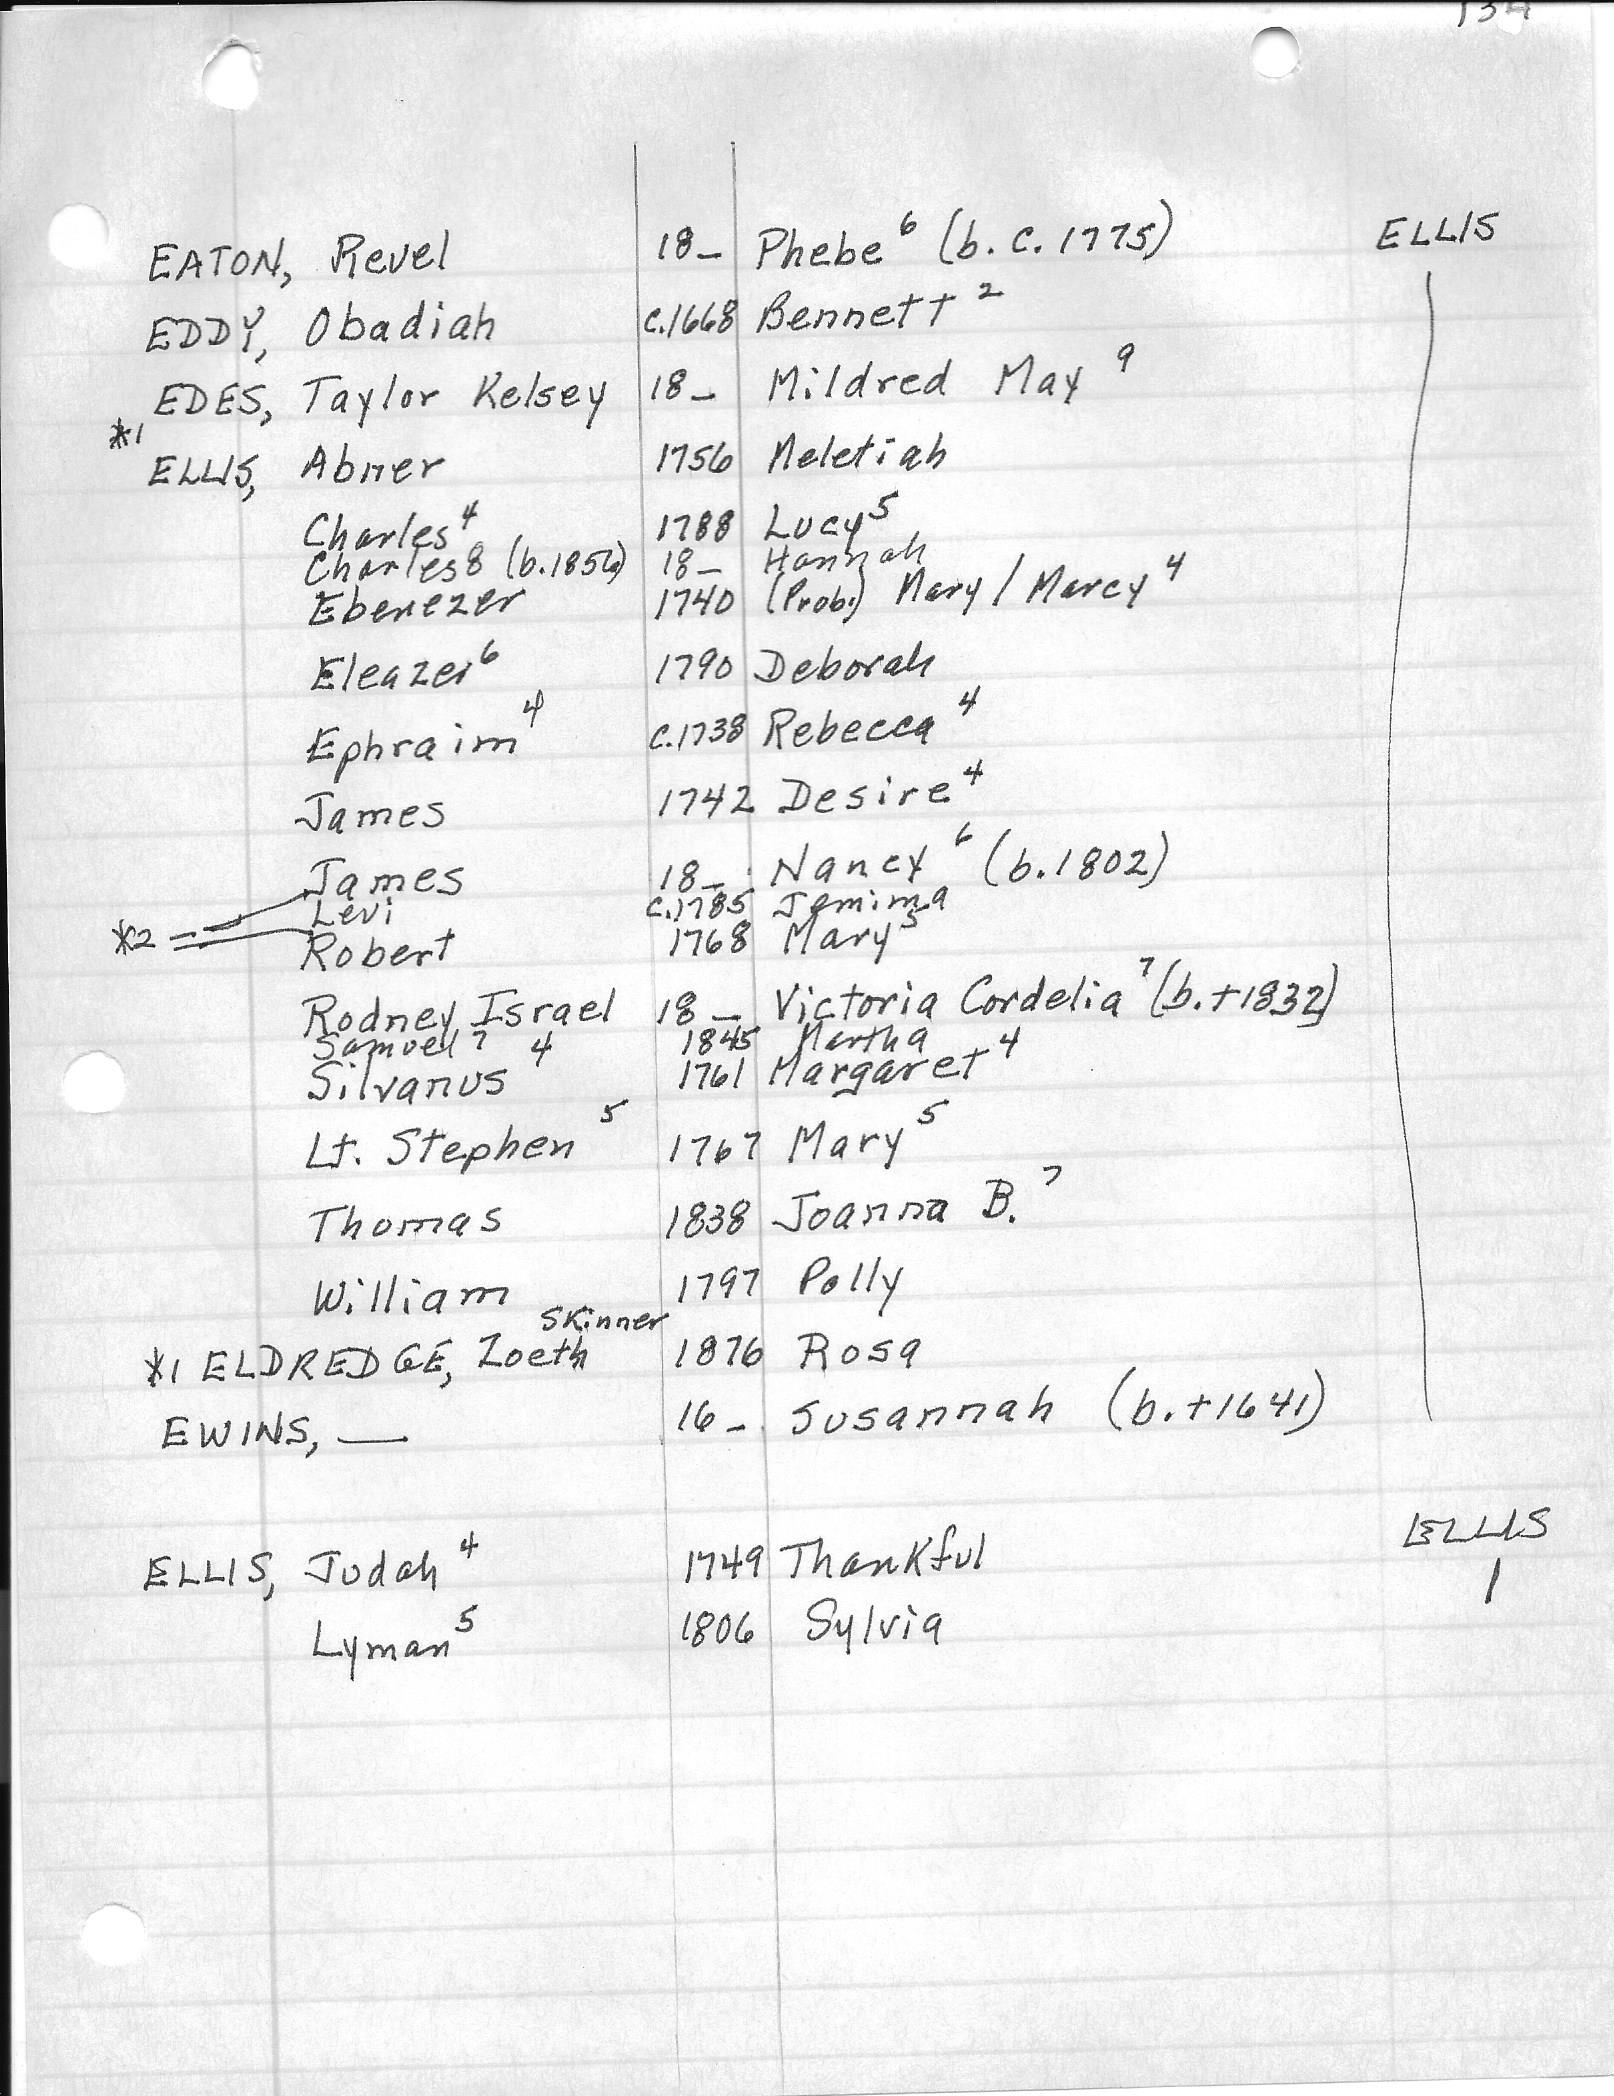 EATON, Revel 18_ Phebe⁶ (b. c. 1775) ELLIS
EDDY, Obadiah c.1668 Bennett²
EDES, Taylor Kelsey 18_ Mildred May⁹
*1
ELLIS, Abner 1756 Meletiah
Charles⁴ 1788 Lucy⁵
Charles8 (b.1856) 18_ Hannah
Ebenezer 1740 (Prob.) Mary / Marcy⁴
Eleazer⁶ 1790 Deborah
Ephraim⁴ c.1738 Rebecca⁴
James 1742 Desire⁴
James 18_ Nancy⁶ (b.1802)
Levi c.1785 Jemima
*2 Robert 1768 Mary⁵
Rodney Israel 18_ Victoria Cordelia⁷ (b.+1832)
Samuel⁷ 1845 Martha
Silvanus⁴ 1761 Margaret⁴
Lt. Stephen⁵ 1767 Mary⁵
Thomas 1838 Joanna B.⁷
William 1797 Polly
Skinner
*1 ELDREDGE, Zoeth 1876 Rosa
EWINS, — 16_. Susannah (b.+1641)
ELLIS
ELLIS, Judah⁴ 1749 Thankful
Lyman⁵ 1806 Sylvia